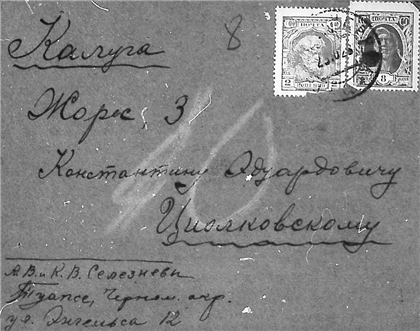 Калуга
8
Жорес, 3
40
Константину Эдуардовичу
Циолковскому
А.В. и К.В. Селезневы
Туапсе, Черном. окр.
ул. Энгельса 12
ПОЧТА
2
ПОЧТА
8